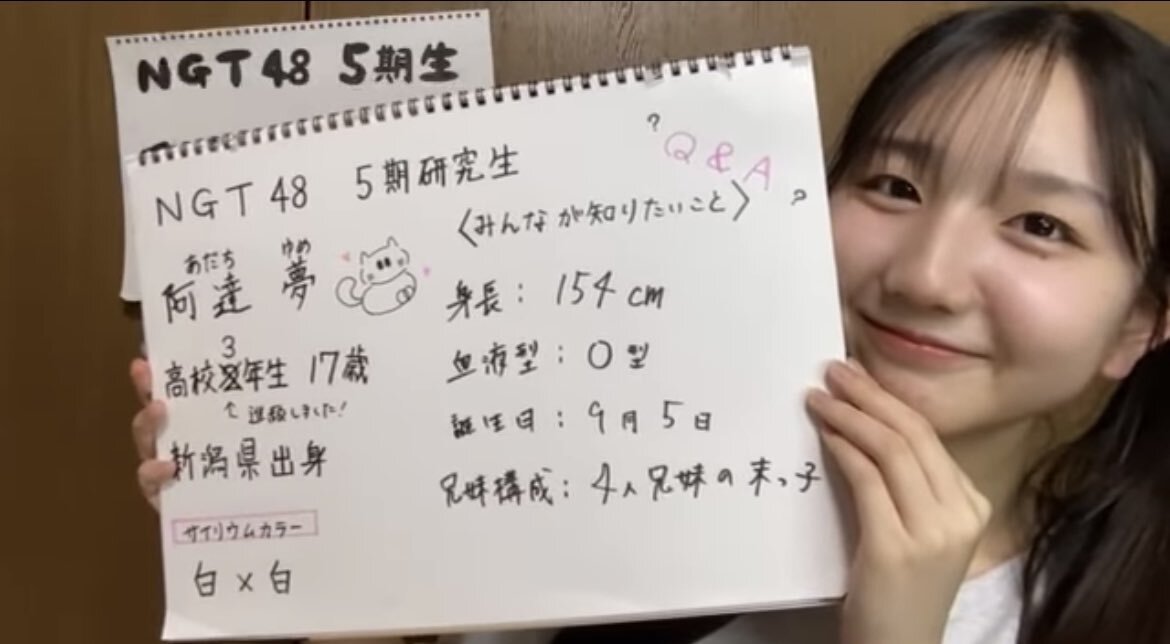 NGT48 5期生
NGT48 5期研究生
あだち ゆめ
阿達 夢
3
高校年生 17歳
↑ 進級しました!
新潟県出身
サイリウムカラー
白×白
? Q&A ?
〈みんなが知りたいこと〉
身長: 154cm
血液型: O型
誕生日: 9月5日
兄妹構成: 4人兄妹の末っ子